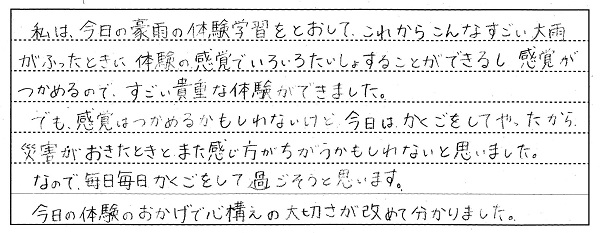 私は、今日の豪雨の体験学習をとおして、これからこんなすごい大雨
がふったときに体験の感覚でいろいろたいしょすることができるし感覚が
つかめるので、すごい貴重な体験ができました。
でも、感覚はつかめるかもしれないけど、今日は、かくごをしてやったから、
災害がおきたときとまた感じ方がちがうかもしれないと思いました。
なので、毎日毎日かくごをして過ごそうと思います。
今日の体験のおかげで心構えの大切さが改めて分かりました。